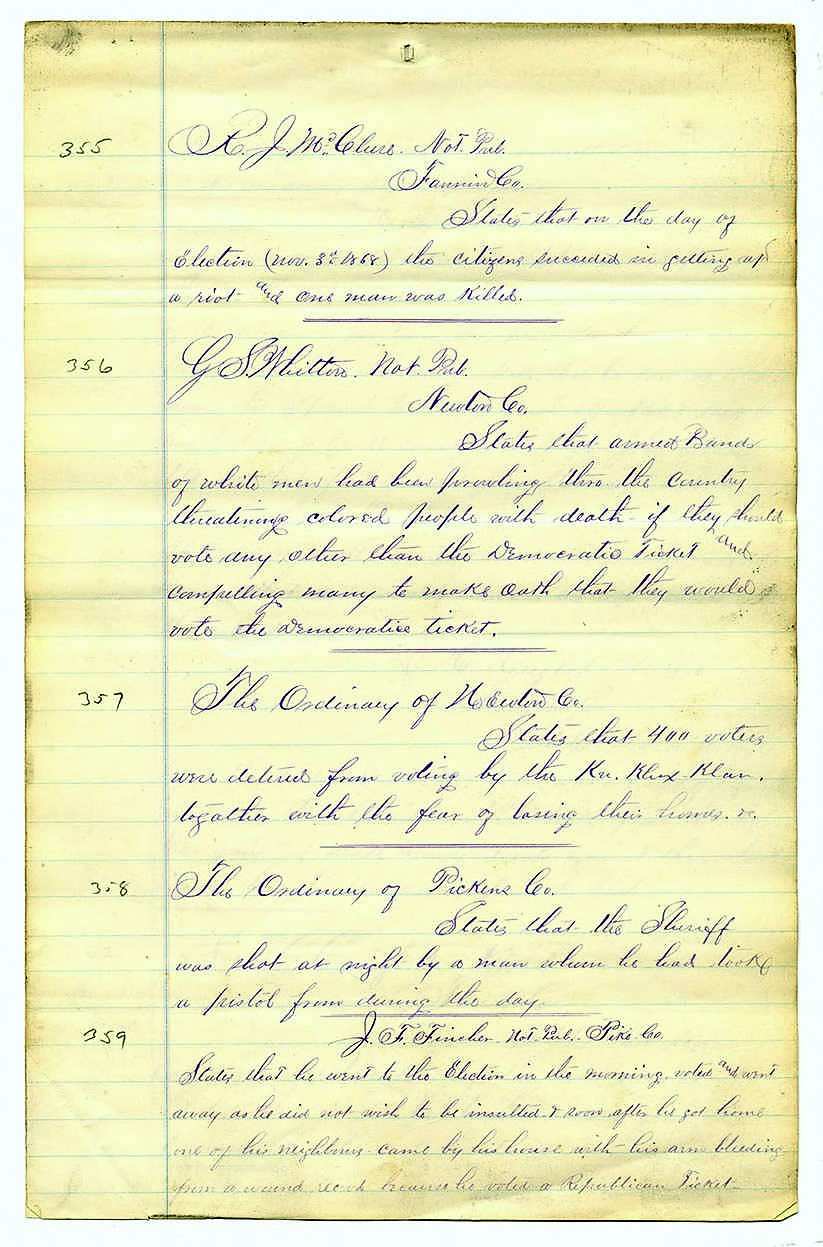 355 R. J. McClure. Not. Pub.
Fannin Co.
States that on the day of
Election (Nov. 3d 1868) the citizens succeded in getting up
a riot and one man was killed.
356 G. S. Whitton. Not. Pub.
Newton Co.
States that armed Bands
of white men had been prowling thro. the Country
threatening colored people with death if they should
vote any other than the Democratic Ticket and
compelling many to make oath that they would
vote the Democratic ticket.
357 The Ordinary of Newton Co.
States that 400 voters
were detered from voting by the Ku. Klux Klan.
together with the fear of losing their homes. &c.
358 The Ordinary of Pickens Co.
States that the Sheriff
was shot at night by a man whom he had took
a pistol from during the day.
359 J. F. Fincher. Not. Pub. Pike Co.
States that he went to the Election in the morning. voted and went
away as he did not wish to be insulted & soon after he got home
one of his neighbours came by his house with his arm bleeding
from a wound, rec'd because he voted a Republican Ticket